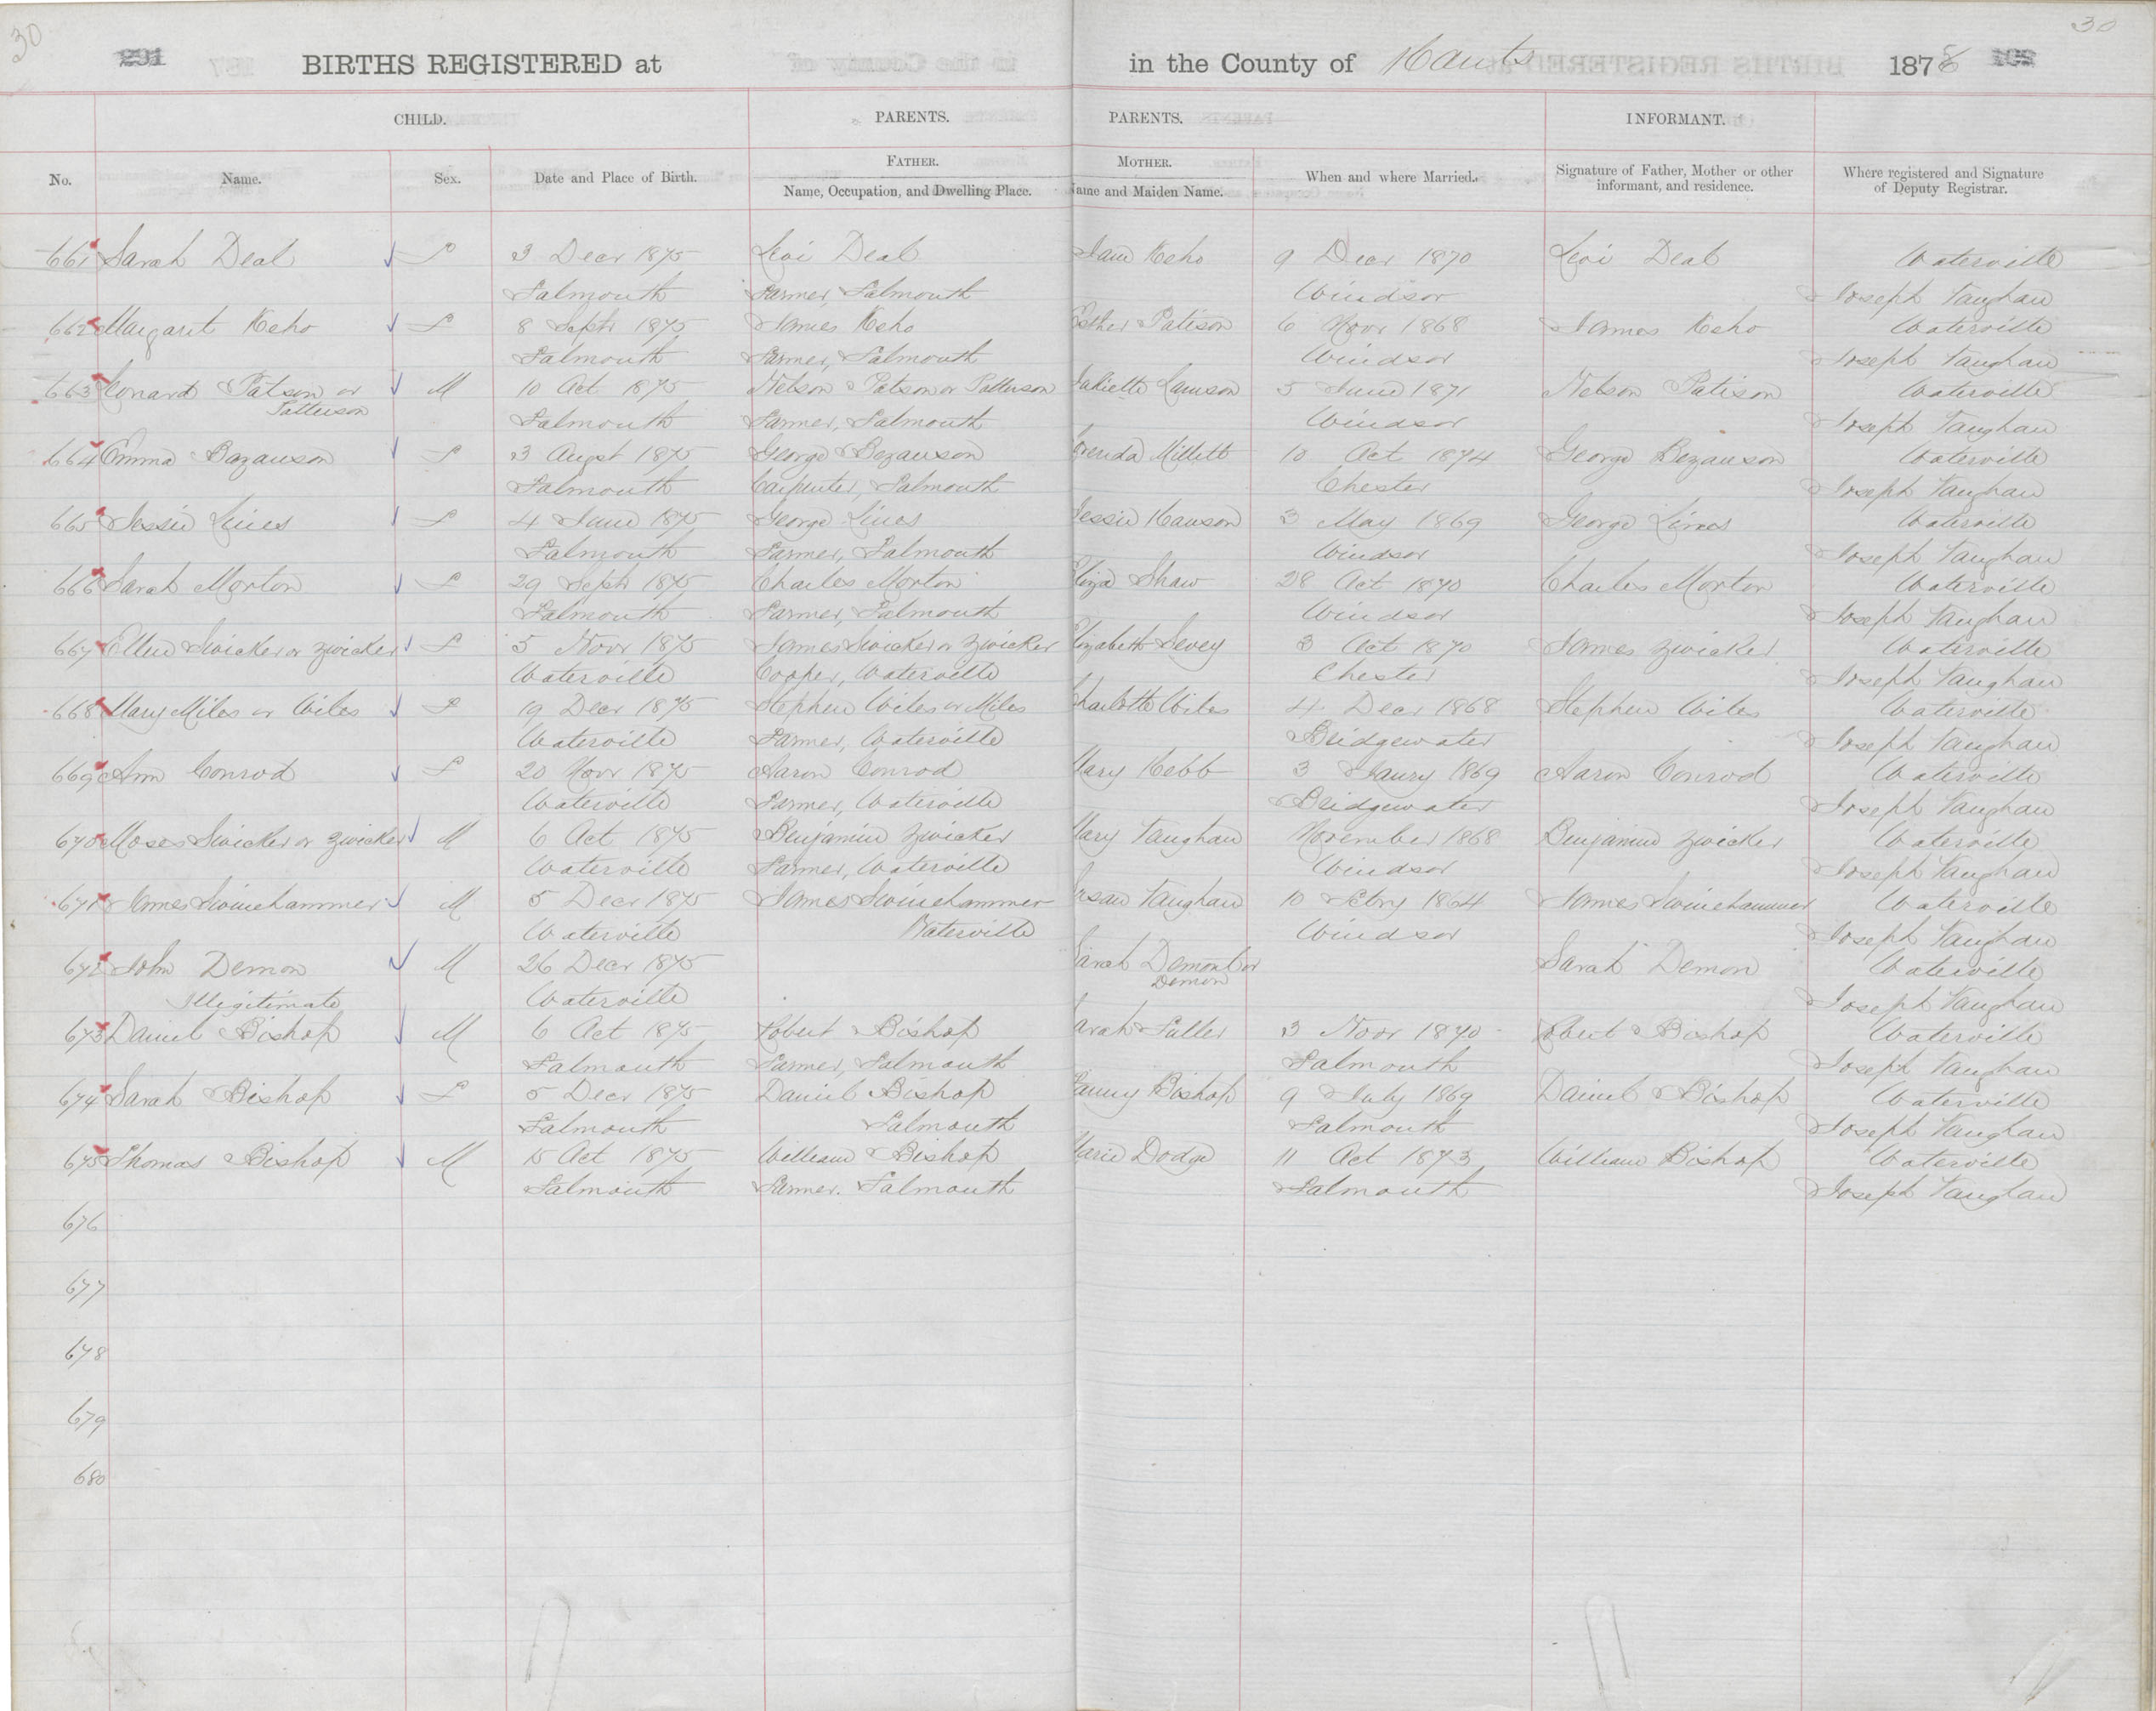 30 30
291 BIRTHS REGISTERED at in the County of Hants 1878
CHILD. PARENTS. PARENTS. INFORMANT.
No. Name. Sex. Date and Place of Birth. FATHER. MOTHER. When and where Married. Signature of Father, Mother or other Where registered and Signature
Name, Occupation, and Dwelling Place. Name and Maiden Name. informant, and residence. of Deputy Registrar.
661 Sarah Deal F 3 Decr 1875 Levi Deal Jane Keho 9 Decr 1870 Levi Deal Waterville
Falmouth Farmer, Falmouth Windsor Joseph Vaughan
662 Margaret Keho F 8 Septr 1875 James Keho Esther Patison 6 Novr 1868 James Keho Waterville
Falmouth Farmer, Falmouth Windsor Joseph Vaughan
663 Leonard Patson or M 10 Oct 1875 Nelson Patson or Patterson Juliette Lawson 5 June 1871 Nelson Patison Waterville
Patterson Falmouth Farmer, Falmouth Windsor Joseph Vaughan
664 Emma Bazauson F 3 Augst 1875 George Bezauson Millett 10 Oct 1874 George Bezauson Waterville
Falmouth Carpenter, Falmouth Chester Joseph Vaughan
665 Jessie Lines F 4 June 1875 George Lines Jessie Hanson 3 May 1869 George Lines Waterville
Falmouth Farmer, Falmouth Windsor Joseph Vaughan
666 Sarah Morton F 29 Septr 1875 Charles Morton Eliza Shaw 28 Oct 1870 Charles Morton Waterville
Falmouth Farmer, Falmouth Windsor Joseph Vaughan
667 Ellen Swicker or Zwicker F 5 Novr 1875 James Swicker or Zwicker Elizabeth Sevey 3 Oct 1870 James Zwicker Waterville
Waterville Cooper, Waterville Chester Joseph Vaughan
668 Mary Miles or Wiles F 19 Decr 1875 Stephen Wiles or Miles Charlotte Wiles 4 Decr 1868 Stephen Wiles Waterville
Waterville Farmer, Waterville Bridgewater Joseph Vaughan
669 Ann Conrod F 20 Novr 1875 Aaron Conrod Mary Hebb 3 Jaury 1869 Aaron Conrod Waterville
Waterville Farmer, Waterville Bridgewater Joseph Vaughan
670 Moses Swicker or Zwicker M 6 Oct 1875 Benjamin Zwicker Mary Vaughan November 1868 Benjamin Zwicker Waterville
Waterville Farmer, Waterville Windsor Joseph Vaughan
671 James Swinehammer M 5 Decr 1875 James Swinehammer Susan Vaughan 10 Febry 1864 James Swinehammer Waterville
Waterville Waterville Windsor Joseph Vaughan
672 John Demon M 26 Decr 1875 Sarah Demont or Sarah Demon Waterville
Illegitimate Waterville Demon Joseph Vaughan
673 Daniel Bishop M 6 Oct 1875 Robert Bishop Sarah Fuller 3 Novr 1870 Robert Bishop Waterville
Falmouth Farmer, Falmouth Falmouth Joseph Vaughan
674 Sarah Bishop F 5 Decr 1875 Daniel Bishop Fanny Bishop 9 July 1869 Daniel Bishop Waterville
Falmouth Falmouth Falmouth Joseph Vaughan
675 Thomas Bishop M 15 Oct 1875 William Bishop Marie Dodge 11 Oct 1873 William Bishop Waterville
Falmouth Farmer. Falmouth Falmouth Joseph Vaughan
676
677
678
679
680